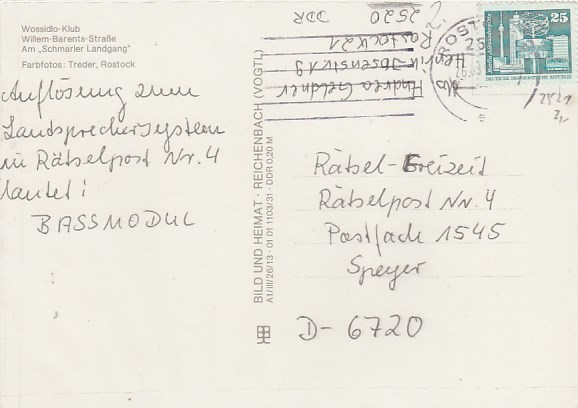 Wossidlo-Klub
Willem-Barents-Straße
Am „Schmarler Landgang"
Farbfotos: Treder, Rostock
Auflösung zum
Landsprechersystem
in Rätselpost Nr. 4
lautet:
BASSMODUL
BILD UND HEIMAT · REICHENBACH (VOGTL)
A1/III/26/13 · 01 01 1103/31 · DDR 0,20 M
Andrea Geldner
Henrik-Ibsenstr 19
Rostock 21
2520
DDR
ROSTOCK
25
25
DEUTSCHE DEMOKRATISCHE REPUBLIK
2521
Rätsel-Freizeit
Rätselpost Nr. 4
Postfach 1545
Speyer
D-6720